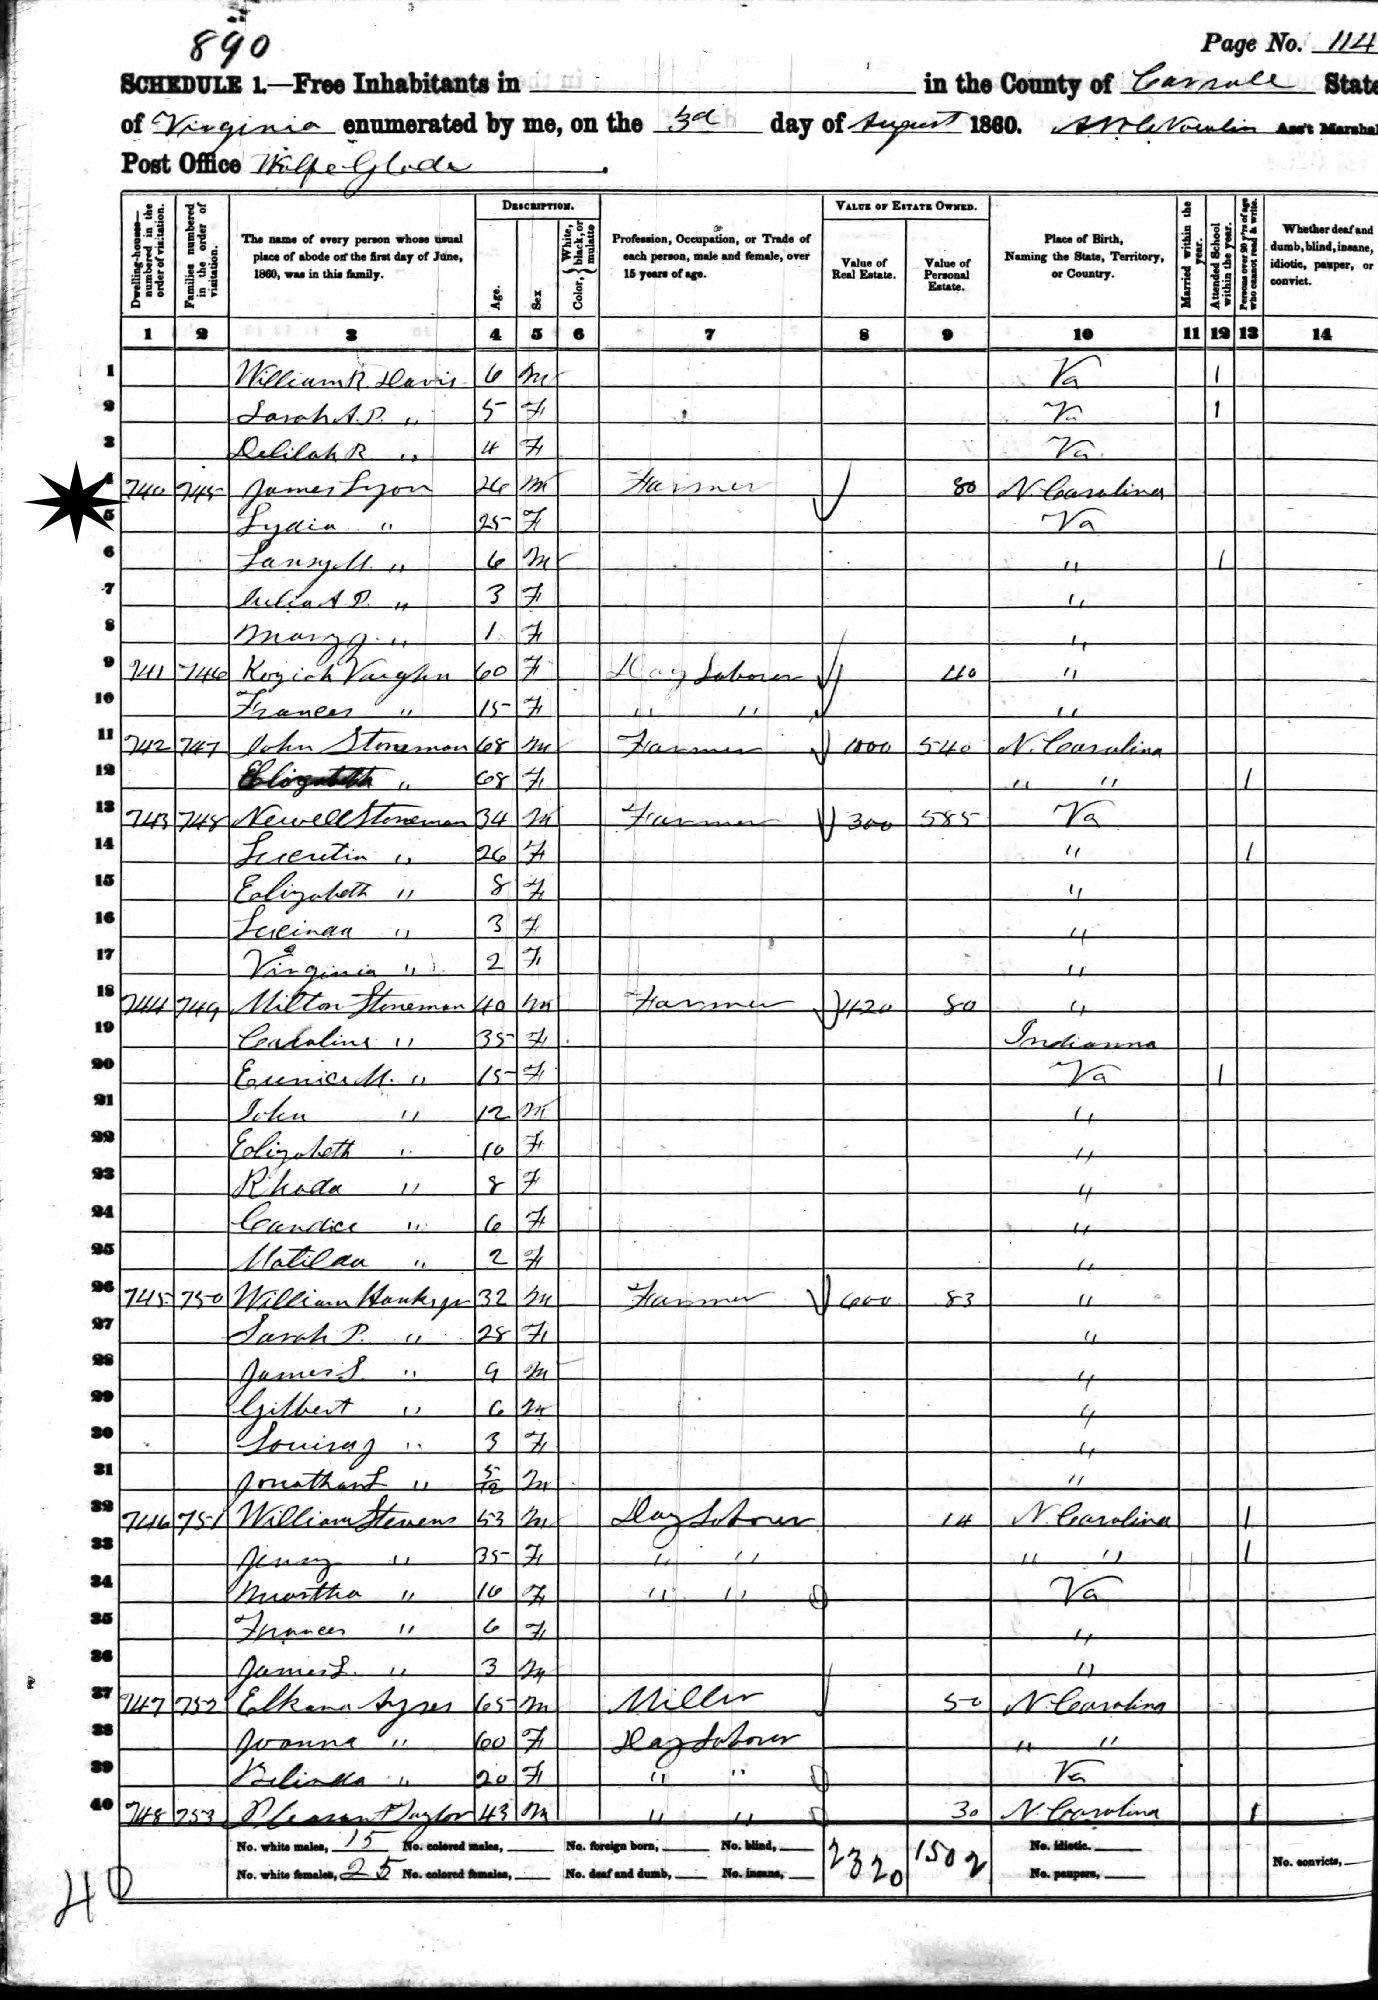 890
Page No. 114
SCHEDULE 1.—Free Inhabitants in in the County of Carroll State
of Virginia enumerated by me, on the 3d day of August 1860. Ass't Marshal
Post Office Wolfe Glade .
DESCRIPTION. VALUE OF ESTATE OWNED.
Dwelling-houses—numbered in the order of visitation.
Families numbered in the order of visitation.
The name of every person whose usual place of abode on the first day of June, 1860, was in this family.
Age.
Sex
Color, { White, black, or mulatto
Profession, Occupation, or Trade of each person, male and female, over 15 years of age.
Value of Real Estate.
Value of Personal Estate.
Place of Birth, Naming the State, Territory, or Country.
Married within the year.
Attended School within the year.
Persons over 20 y'rs of age who cannot read & write.
Whether deaf and dumb, blind, insane, idiotic, pauper, or convict.
1 2 3 4 5 6 7 8 9 10 11 12 13 14
1 William R. Davis 6 M Va 1
2 Sarah A. P. " 5 F Va 1
3 Delilah R " 4 F Va
4 740 745 James Lyon 26 M Farmer 80 N. Carolina
5 Lydia " 25 F Va
6 M. " 6 M " 1
7 Julia A P. " 3 F "
8 Mary J. " 1 F "
9 741 746 Keziah Vaughn 60 F Day Laborer 40 "
10 Frances " 15 F " " "
11 742 747 John Stoneman 68 M Farmer 1000 540 N. Carolina
12 Elizabeth " 68 F " " 1
13 743 748 Newell Stoneman 34 M Farmer 300 585 Va
14 Lucretia " 26 F " 1
15 Eolizabeth " 8 F "
16 Lucinda " 3 F "
17 Virginia " 2 F "
18 744 749 Milton Stoneman 40 M Farmer 420 80 "
19 Caroline " 35 F Indianna
20 Eunice M. " 15 F Va 1
21 John " 12 M "
22 Eolizabeth " 10 F "
23 Rhoda " 8 F "
24 Candice " 6 F "
25 Matilda " 2 F "
26 745 750 William Hanks jr 32 M Farmer 600 83 "
27 Sarah P. " 28 F "
28 James S. " 9 M "
29 Gilbert " 6 M "
30 Louisa J " 3 F "
31 Jonathan L " 5/12 M "
32 746 751 William Stevens 53 M Day Laborer 14 N. Carolina 1
33 Jenny " 35 F " " " " 1
34 Martha " 16 F " " Va
35 Frances " 6 F "
36 James L. " 3 M "
37 747 752 Elkana Ayres 65 M Miller 50 N. Carolina
38 Joanna " 60 F Day Laborer " "
39 Belinda " 20 F " " Va
40 748 753 Pleasant Taylor 43 M " " 30 N. Carolina 1
No. white males, 15 No. colored males, No. foreign born, No. blind, 2320 1502 No. idiotic.
No. white females, 25 No. colored females, No. deaf and dumb, No. insane, No. paupers, No. convicts,
40